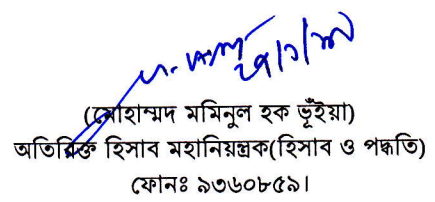 (মোহাম্মদ মমিনুল হক ভূঁইয়া)
অতিরিক্ত হিসাব মহানিয়ন্ত্রক(হিসাব ও পদ্ধতি)
ফোনঃ ৯৩৬০৮৫৯।